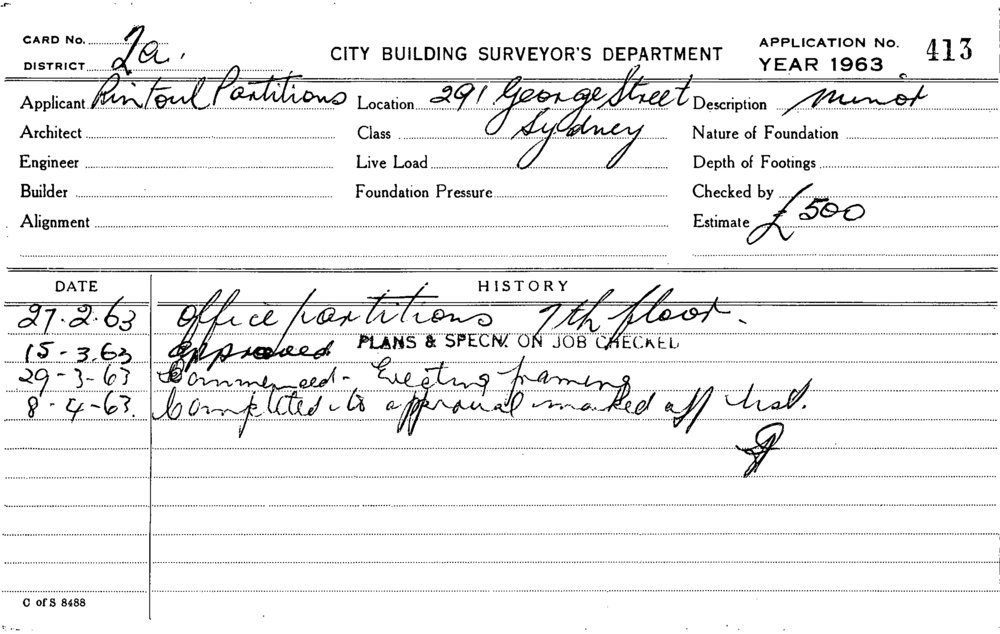 CARD No. 2a.
DISTRICT
CITY BUILDING SURVEYOR'S DEPARTMENT
APPLICATION No. 413
YEAR 1963
Applicant Rintoul Partitions Location 291 George Street Description Minor
Architect Class Sydney Nature of Foundation
Engineer Live Load Depth of Footings
Builder Foundation Pressure Checked by
Alignment Estimate £500
DATE HISTORY
27.2.63 Office partitions 7th floor.
15-3.63 approved PLANS & SPECN. ON JOB CHECKED
29-3-63 Commenced - Erecting framing
8-4-63. Completed to approval marked off list.
C of S 8488